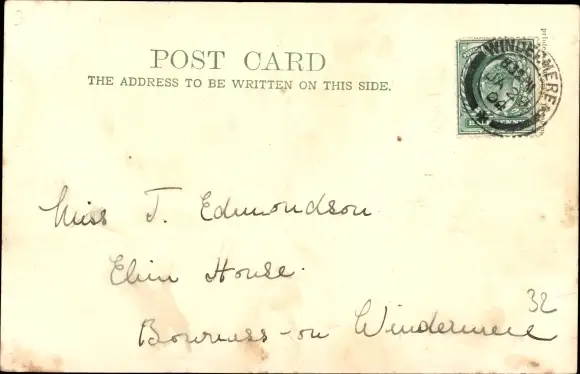 POST CARD
THE ADDRESS TO BE WRITTEN ON THIS SIDE.
WINDERMERE
JA 20
04
Miss J. Edmondson
Elim House.
Bowness-on Windermere
32